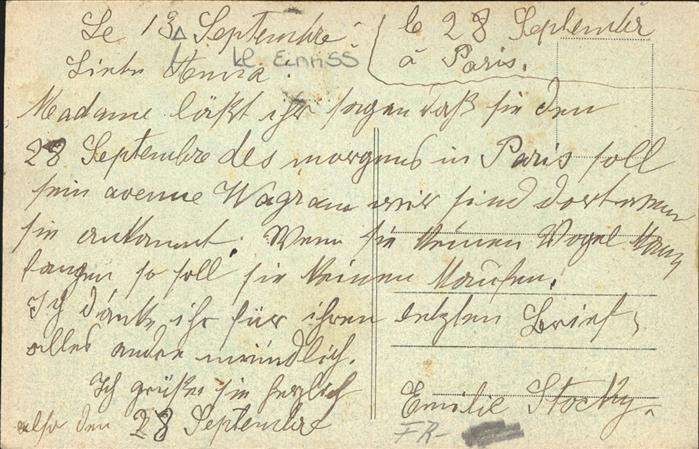 Le 13 Septembre
le 28 Septembre
à Paris.
Liebe Anna!
Madame läßt ihr sagen daß sie den
28 Septembre des morgens in Paris soll
sein avenue Wagram wir sind dort wenn
sie ankommt. Wenn sie keinen Vogel kann
fangen so soll sie keinen kaufen.
Ich danke ihr für ihren letzten Brief,
alles andre mündlich.
Ich grüße sie herzlich
Emilie
also den 28 Septembre
FR-